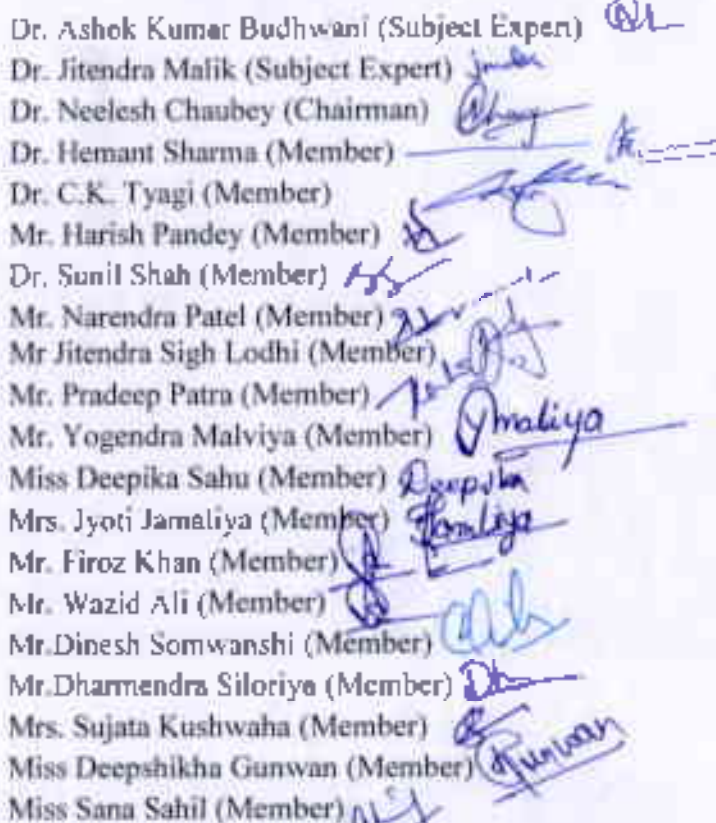 Dr. Ashok Kumar Budhwani (Subject Expert)
Dr. Jitendra Malik (Subject Expert)
Dr. Neelesh Chaubey (Chairman)
Dr. Hemant Sharma (Member)
Dr. C.K. Tyagi (Member)
Mr. Harish Pandey (Member)
Dr. Sunil Shah (Member)
Mr. Narendra Patel (Member)
Mr Jitendra Sigh Lodhi (Member)
Mr. Pradeep Patra (Member)
Mr. Yogendra Malviya (Member)
Miss Deepika Sahu (Member) Deepika
Mrs. Jyoti Jamaliya (Member)
Mr. Firoz Khan (Member)
Mr. Wazid Ali (Member)
Mr.Dinesh Somwanshi (Member)
Mr.Dharmendra Siloriya (Member)
Mrs. Sujata Kushwaha (Member)
Miss Deepshikha Gunwan (Member) Gunwan
Miss Sana Sahil (Member)